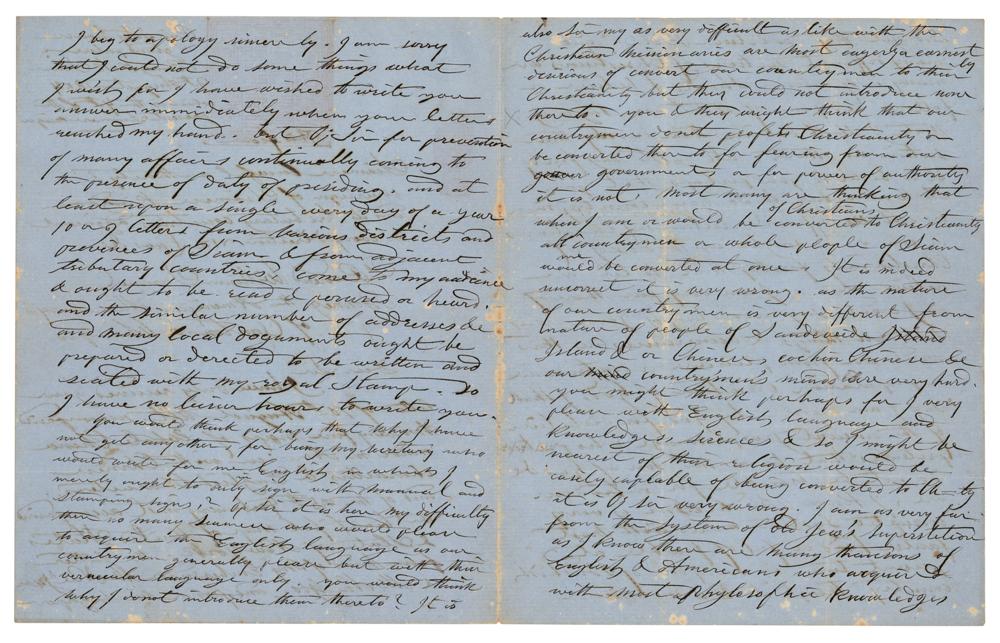 I beg to apology sincerely. I am sorry
that I could not do some things what
I wish for I have wished to write you
answer immediately when your letters
reached my hand. but O, Sir for prevention
of many affairs continually coming to
the presence of duty of presiding. and at
least upon a single every day of a year
10 or 9 letters from various districts and
provinces of Siam & from adjacent
tributary countries come to my audience
& ought to be read & perused or heard.
and the similar number of addresses &c
and many local documents ought be
prepared or derected to be written and
sealed with my royal stamp. So
I have no leisur hours to write you.
You want think perhaps that why I have
not get anyother for being my secretary who
would write for me English in which I
merely ought to only sign with manual and
stamping signs? Oh sir it is here my difficulty
then no many Siamese who would please
to acquire the English language as our
countrymen generally please but with their
vernacular language only. you would think
why I donot introduce them thereto? It is
also Sir my as very difficult as like with the
Christian missionaries are most eagerly & earnestly
desirious of convert our countrymen to their
Christianity but they could not introduce none
thereto. you & they might think that our
countrymen donot profess Christianity or
be converted thereto for fearing from our
government, or for power of authority
it is not most many are thinking that
of Christians
when I am or would be converted to Christianity
all countrymen or whole people of Siam
would be converted at once. It is indeed
uncorrect it is very wrong. as the nature
of our countrymen is very different from
nature of people of Sandwide
Island & or Chinese, cochin Chinese &c
our countrymen's minds are very hard.
you might think perhaps for I very
please with English language and
knowledges sicences & so I might be
nearest of their religion would be
easily captable of being converted to Ch=ty
it is O, sir very wrong. I am as very far
from the system of Jew's superstition
as I know there are many thansons of
English & Americans who acquire
with most a phylosophic knowledges